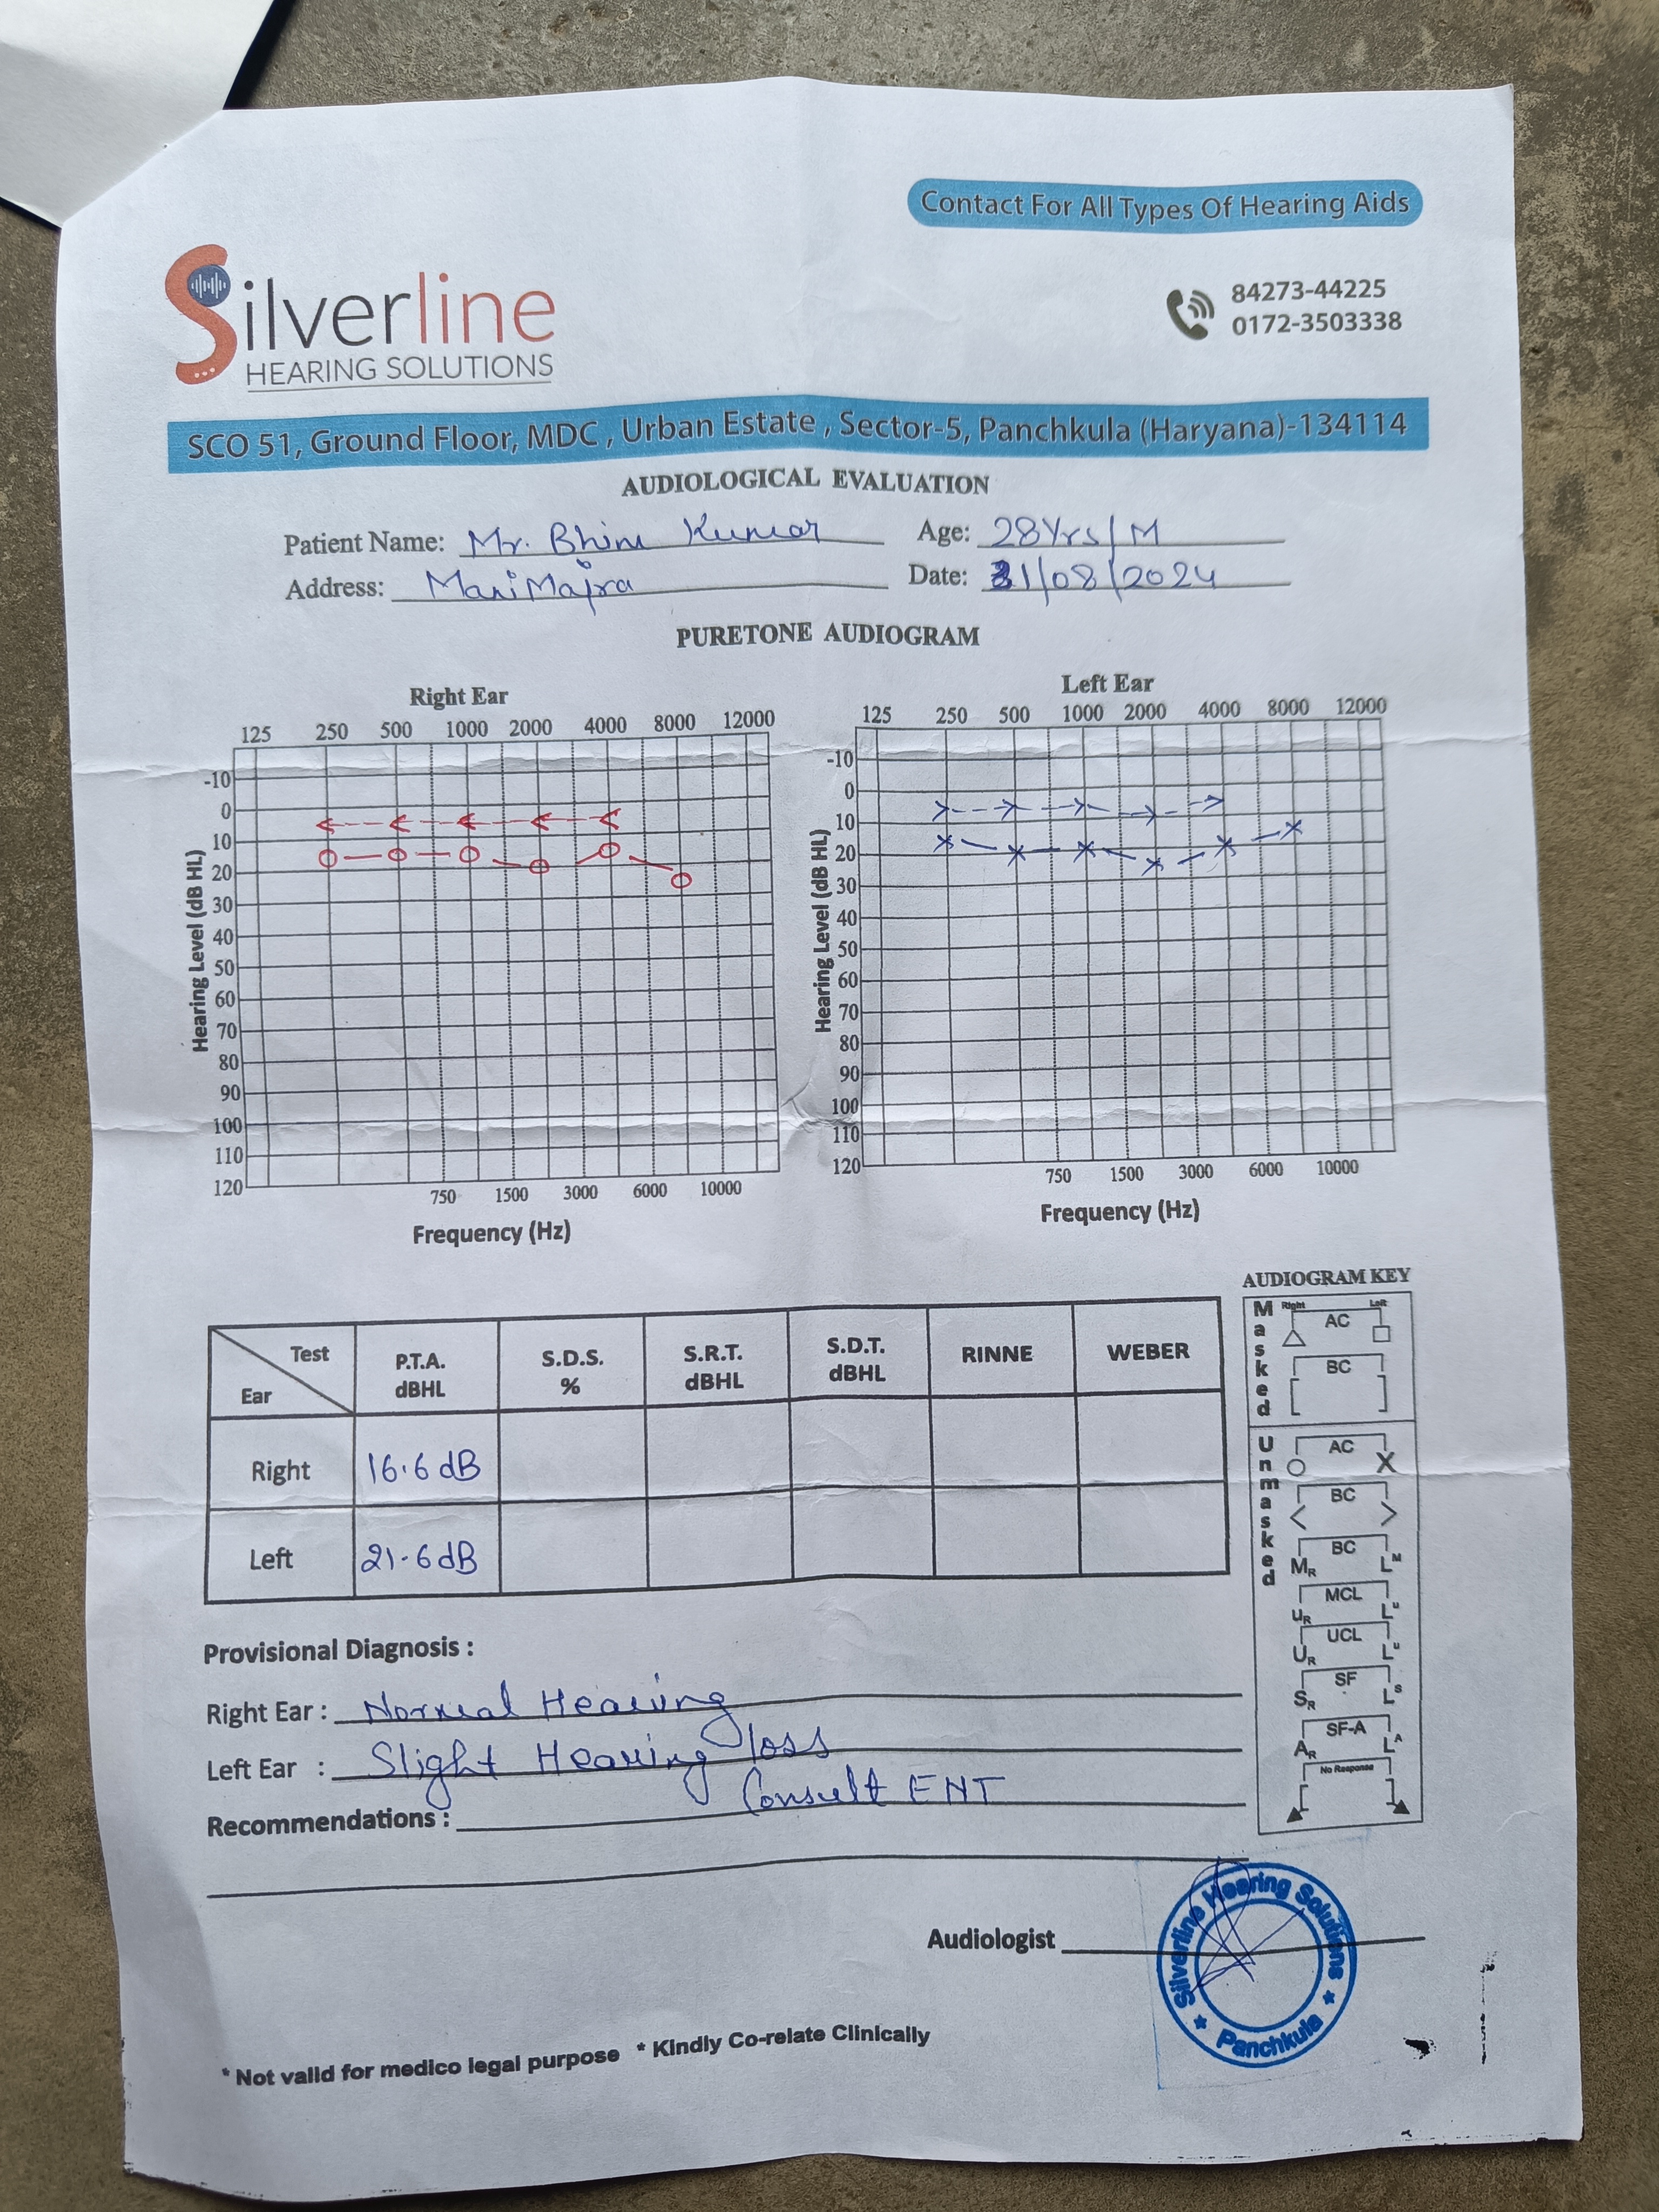 Contact For All Types Of Hearing Aids
Silverline
HEARING SOLUTIONS
84273-44225
0172-3503338
SCO 51, Ground Floor, MDC , Urban Estate , Sector-5, Panchkula (Haryana)-134114
AUDIOLOGICAL EVALUATION
Patient Name: Mr. Bhim Kumar Age: 28Yrs/M
Address: ManiMajra Date: 31/08/2024
PURETONE AUDIOGRAM
Right Ear
125 250 500 1000 2000 4000 8000 12000
-10
0
10
20
30
40
50
60
70
80
90
100
110
120
Hearing Level (dB HL)
750 1500 3000 6000 10000
Frequency (Hz)
Left Ear
125 250 500 1000 2000 4000 8000 12000
-10
0
10
20
30
40
50
60
70
80
90
100
110
120
Hearing Level (dB HL)
750 1500 3000 6000 10000
Frequency (Hz)
Test Ear P.T.A. dBHL S.D.S. % S.R.T. dBHL S.D.T. dBHL RINNE WEBER
Right 16.6 dB
Left 21.6 dB
AUDIOGRAM KEY
Masked
Right Left
AC
BC
[ ]
Unmasked
AC
O X
BC
< >
BC
MR LM
MCL
uR Lu
UCL
UR Lu
SF
SR LS
SF-A
AR LA
No Response
Provisional Diagnosis :
Right Ear : Normal Hearing
Left Ear : Slight Hearing loss
Recommendations : Consult ENT
Audiologist
Silverline Hearing Solutions
* Panchkula *
* Not valid for medico legal purpose * Kindly Co-relate Clinically